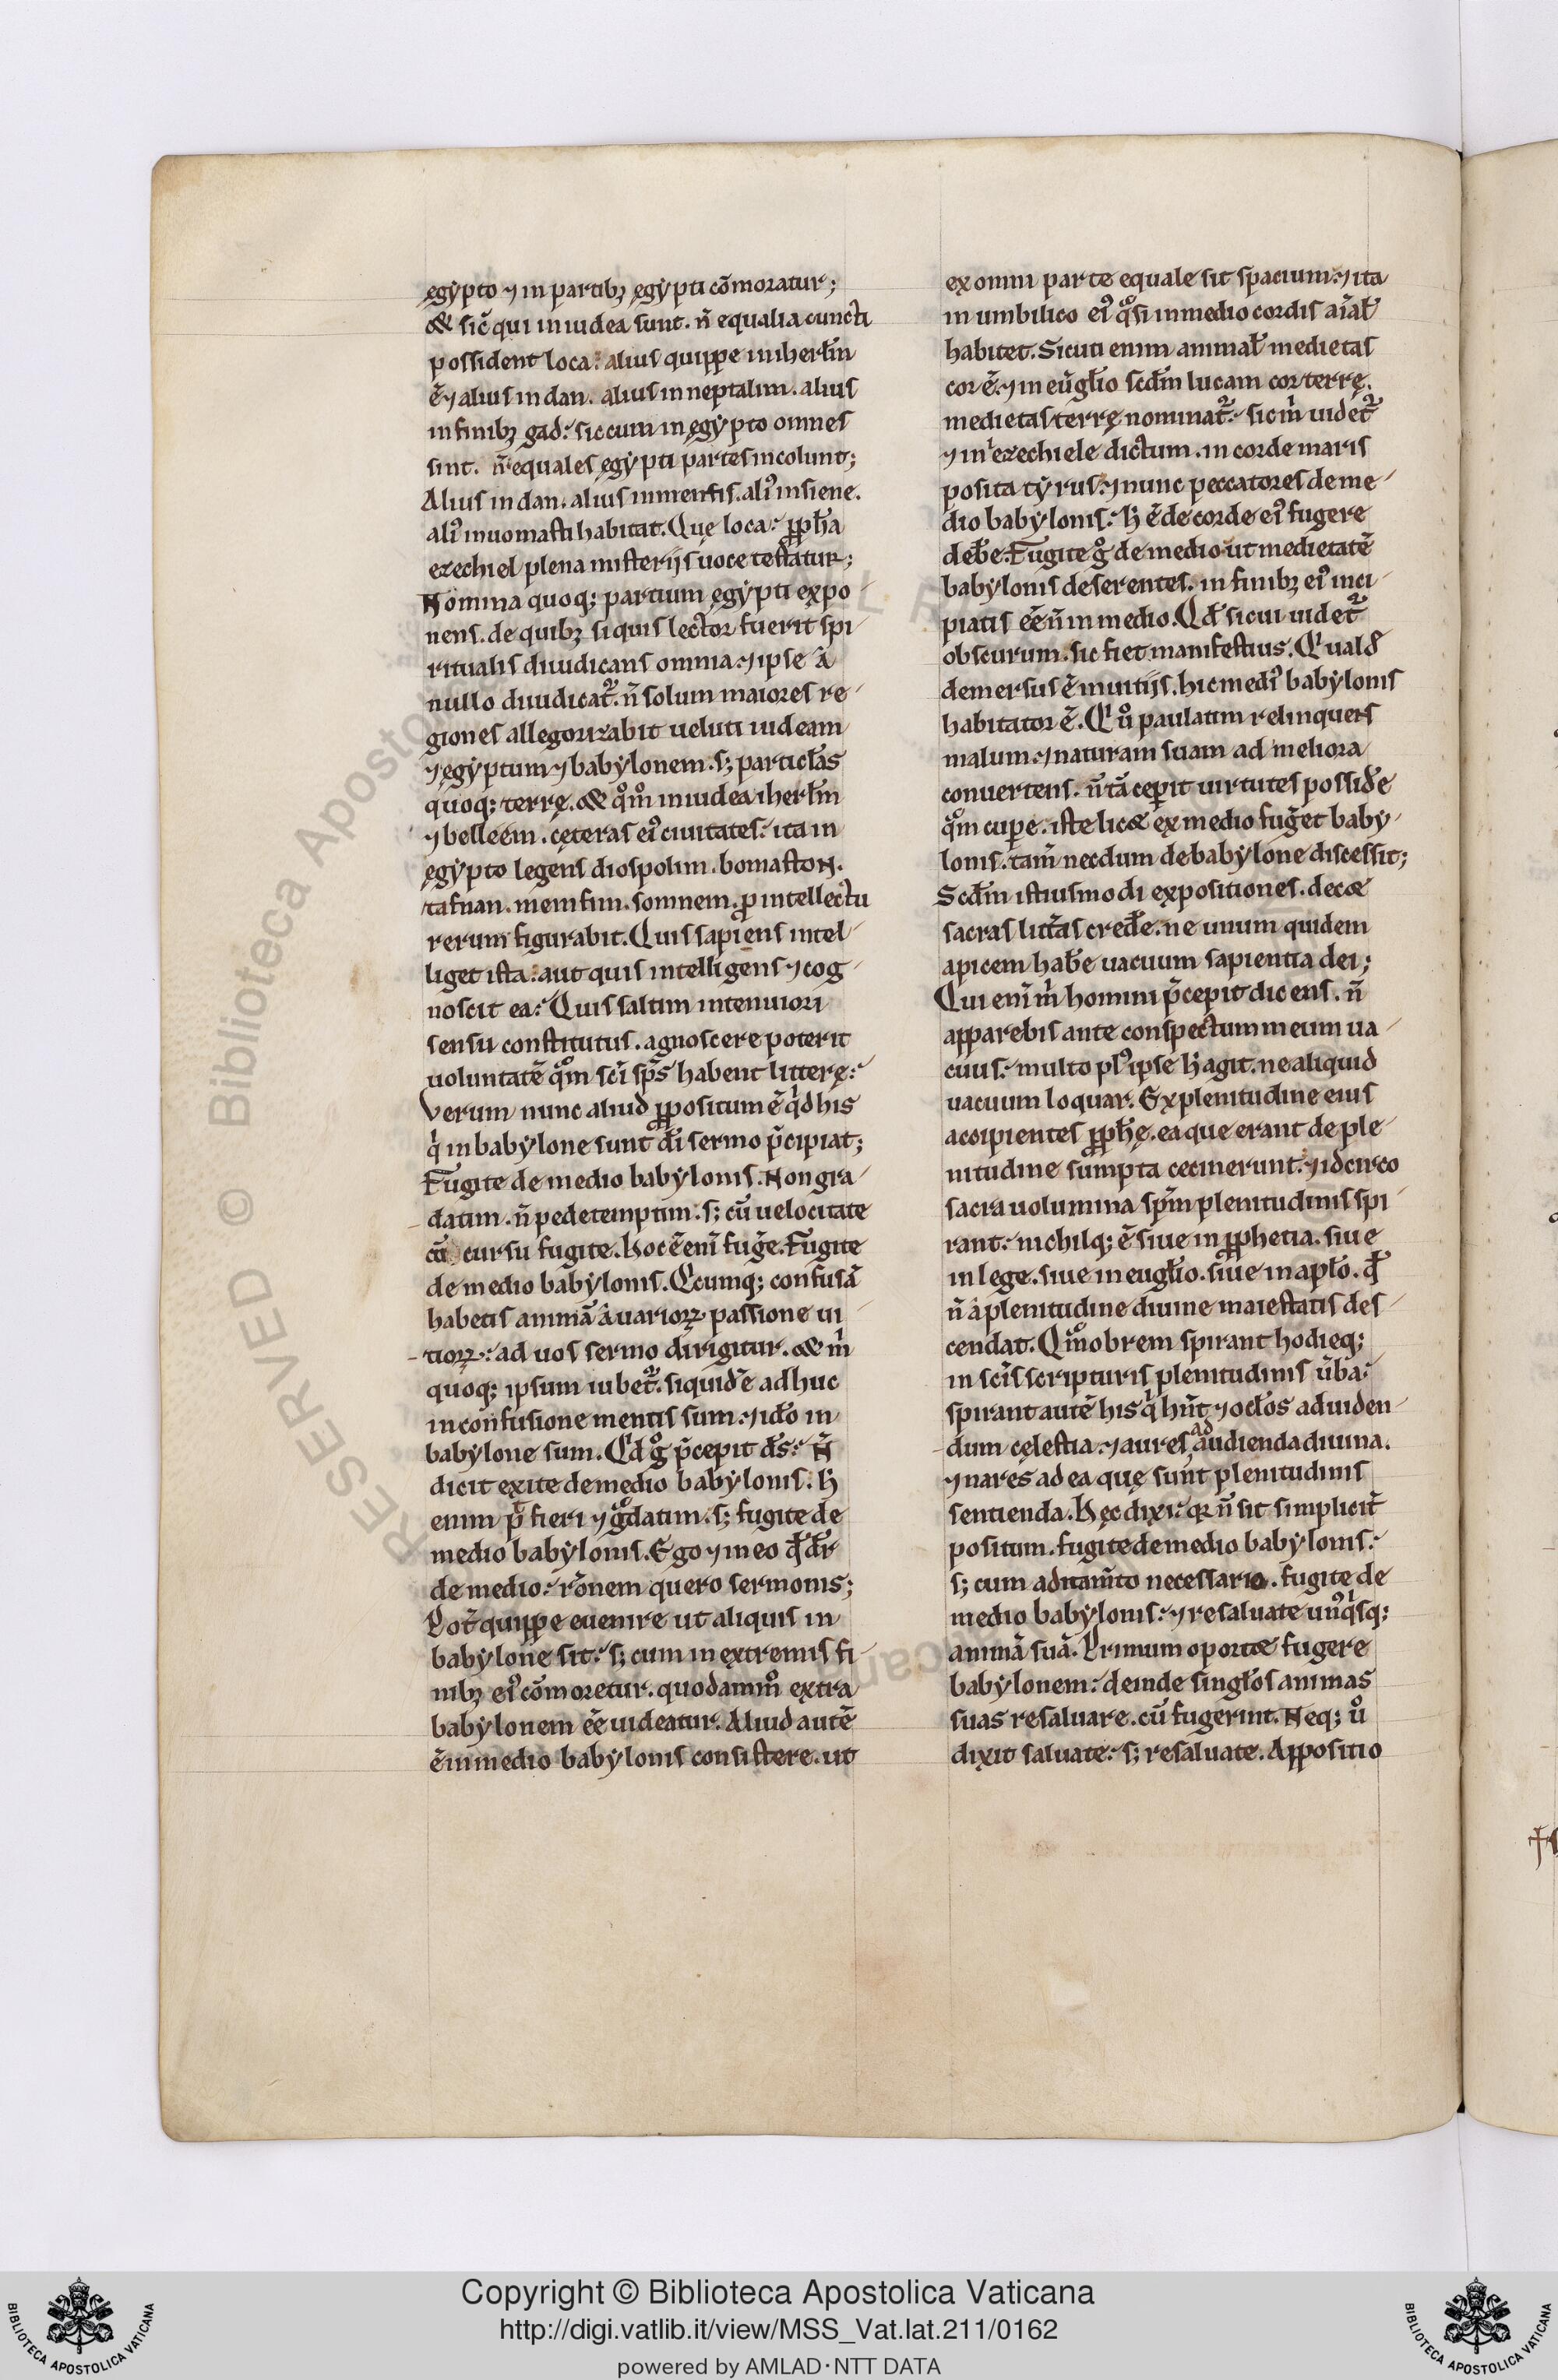 ęgẏpto ⁊ in partibꝫ ęgẏpti cōmoratur;
& sic̄ qui in iudea sunt. n̄ equalia cuncti
possident loca: alius quippe in iherłm
ē ⁊ alius in dan. alius in neptalim. alius
in finibꝫ gad: sic cum in ęgẏpto omnes
sint. n̄ equales ęgẏpti partes incolunt;
Alius in dan. alius in menfis. aliꝰ in siene.
aliꝰ in uomasti habitat. Quę loca: ꝓph̄a
ezechiel plena misterijs uoce testatur;
Nomina quoq; partium ęgẏpti expo
nens. de quibꝫ si quis lector fuerit spi
ritualis diiudicans omnia: ⁊ ipse à
nullo diiudicat᷑. n̄ solum maiores re
giones allegorizabit ueluti iudeam
⁊ ęgẏptum ⁊ babẏlonem. s; particłas
quoq; terrę. & qͦm̊ in iudea iherłm
⁊ belleem. cęteras eiꝰ ciuitates: ita in
ęgẏpto legens diospolim. bomaston.
tafnan. memfim. somnem. ꝓ intellectu
rerum figurabit. Quis sapiens intel
liget ista: aut quis intelligens ⁊ cog
noscit ea: Quis saltim in tenuiori
sensu constitutus. agnoscere poterit
uoluntatē qͦm sc̄i sp̄s habent litterę:
Verum nunc aliud ꝓpositum ē qͥd his
qͥ in babẏlone sunt dī sermo p̄cipiat;
Fugite de medio babẏlonis. Non gra
datim. n̄ pedetemptim. s; cū uelocitate
cū cursu fugite. Hoc ē enī fug̃e. Fugite
de medio babẏlonis. Qcumq; confusā
habetis animā à uarioꝝ passione ui
tioꝝ: ad uos sermo dirigitur. & m̍
quoq; ipsum iubet᷑. siquidē adhuc
in confusione mentis sum: ⁊ idō in
babẏlone sum. Qd gͦ p̄cepit ds̄: N̄
dicit exite de medio babẏlonis. h̍
enim p̄ fieri ⁊ gͣdatim. s; fugite de
medio babẏlonis. Ego ⁊ in eo qđ dr̄
de medio: rōnem quero sermonis;
Pot̄ quippe euenire ut aliquis in
babẏlone sit: s; cum in extremis fi
nibꝫ eiꝰ cōmoretur. quodammͦ extra
babẏlonem eē uideatur. Aliud autē
ē in medio babẏlonis consistere. ut
ex omni parte equale sit spacium: ⁊ ita
in umbilico eiꝰ qͣsi in medio cordis aīał
habitet. Sicuti enim animał medietas
cor ē: ⁊ in eu̅głio scđm lucam cor terrę.
medietas terrę nominat᷑: sic m̍ uidet᷑
⁊ in ezechiele dictum. in corde maris
posita tẏrus: ⁊ nunc peccatores de me
dio babẏlonis: h̍ ē de corde eiꝰ fugere
deb̄e. Fugite gͦ de medio ut medietatē
babẏlonis deserentes. in finibꝫ eiꝰ inci
piatis eē n̄ in medio. Qđ sicui uidet᷑
obscurum. sic fiet manifestius. Qui ualđ
demersus ē in uitijs. hic mediꝰ babẏlonis
habitator ē. Q uͦ paulatim relinquens
malum: ⁊ naturam suam ad meliora
conuertens. n̄ tā cepit uirtutes possiđe
qͣm cupe. iste lic& ex medio fug̃et babẏ
lonis. tam̄ necdum de babẏlone discessit;
Scđm istiusmodi expositiones. dec&
sacras litt̄as cređe. ne unum quidem
apicem hab̄e uacuum sapientia dei;
Qui enī m̍ homini p̄cepit dicens. n̄
apparebis ante conspectum meum ua
cuus: multo plꝰ ipse h̍ agit. ne aliquid
uacuum loquar. Ex plenitudine eius
accipientes ꝓph̄ę. ea que erant de ple
nitudine sumpta cecinerunt: ⁊ idcirco
sacra uolumina sp̄m plenitudinis spi
rant: nichilq; ē siue in ꝓphetia. siue
in lege. siue in eugłio. siue in apło. qđ
n̄ à plenitudine diuine maiestatis des
cendat. Qͣmobrem spirant hodieq;
in sc̄is scripturis plenitudinis ūba:
spirant autē his qͥ hn̄t ⁊ ocłos ad uiden
dum cęlestia: ⁊ aures ad audienda diuina.
⁊ nares ad ea quę sunt plenitudinis
sentienda. Hęc dixi: qꝛ n̄ sit simplicit̄
positum. fugite de medio babẏlonis:
s; cum aditam̄to necessario. fugite de
medio babẏlonis: ⁊ resaluate unꝰqͥsq;
animā suā. Primum oport& fugere
babẏlonem: deinde singłos animas
suas resaluare. cū fugerint. Neq; uͦ
dixit saluate: s; resaluate. Appositio
RESERVED © Biblioteca Apostolica Vaticana
Copyright © Biblioteca Apostolica Vaticana
http://digi.vatlib.it/view/MSS_Vat.lat.211/0162
powered by AMLAD·NTT DATA
BIBLIOTECA APOSTOLICA VATICANA
BIBLIOTECA APOSTOLICA VATICANA